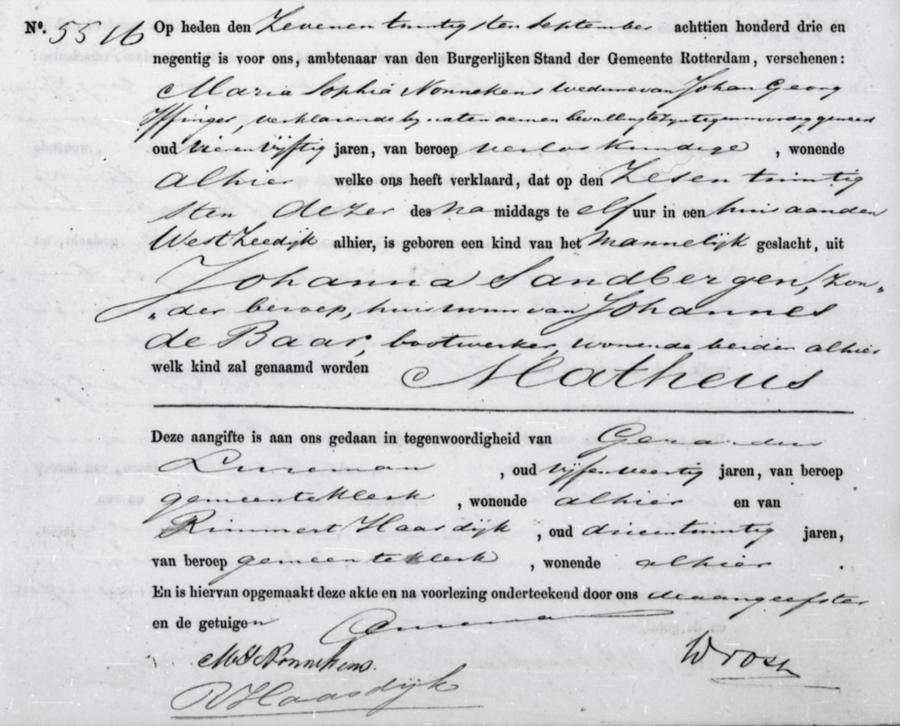 Nº. 5516 Op heden den Zevenentwintigsten September achttien honderd drie en
negentig is voor ons, ambtenaar van den Burgerlijken Stand der Gemeente Rotterdam, verschenen:
Maria Sophia Nonnekens weduwe van Johan Georg
Iffinger, verklarende bij na te noemen bevalling te zijn tegenwoordig geweest
oud vierenvijftig jaren, van beroep verloskundige , wonende
alhier welke ons heeft verklaard, dat op den Zesentwintig
sten dezer des namiddags te elf uur in een huis aan den
Westzeedijk alhier, is geboren een kind van het Mannelijk geslacht, uit
Johanna Sandbergen, zon„
„der beroep, huisvrouw van Johannes
de Baar, bootwerker, wonende beiden alhier
welk kind zal genaamd worden Matheus
Deze aangifte is aan ons gedaan in tegenwoordigheid van Gerardus
, oud vijfenveertig jaren, van beroep
gemeenteklerk , wonende alhier en van
Rimmert Haasdijk , oud drieentwintig jaren,
van beroep gemeenteklerk , wonende alhier
En is hiervan opgemaakt deze akte en na voorlezing onderteekend door ons de aangeefster
en de getuigen
MS Nonnekens.
RHaasdijk